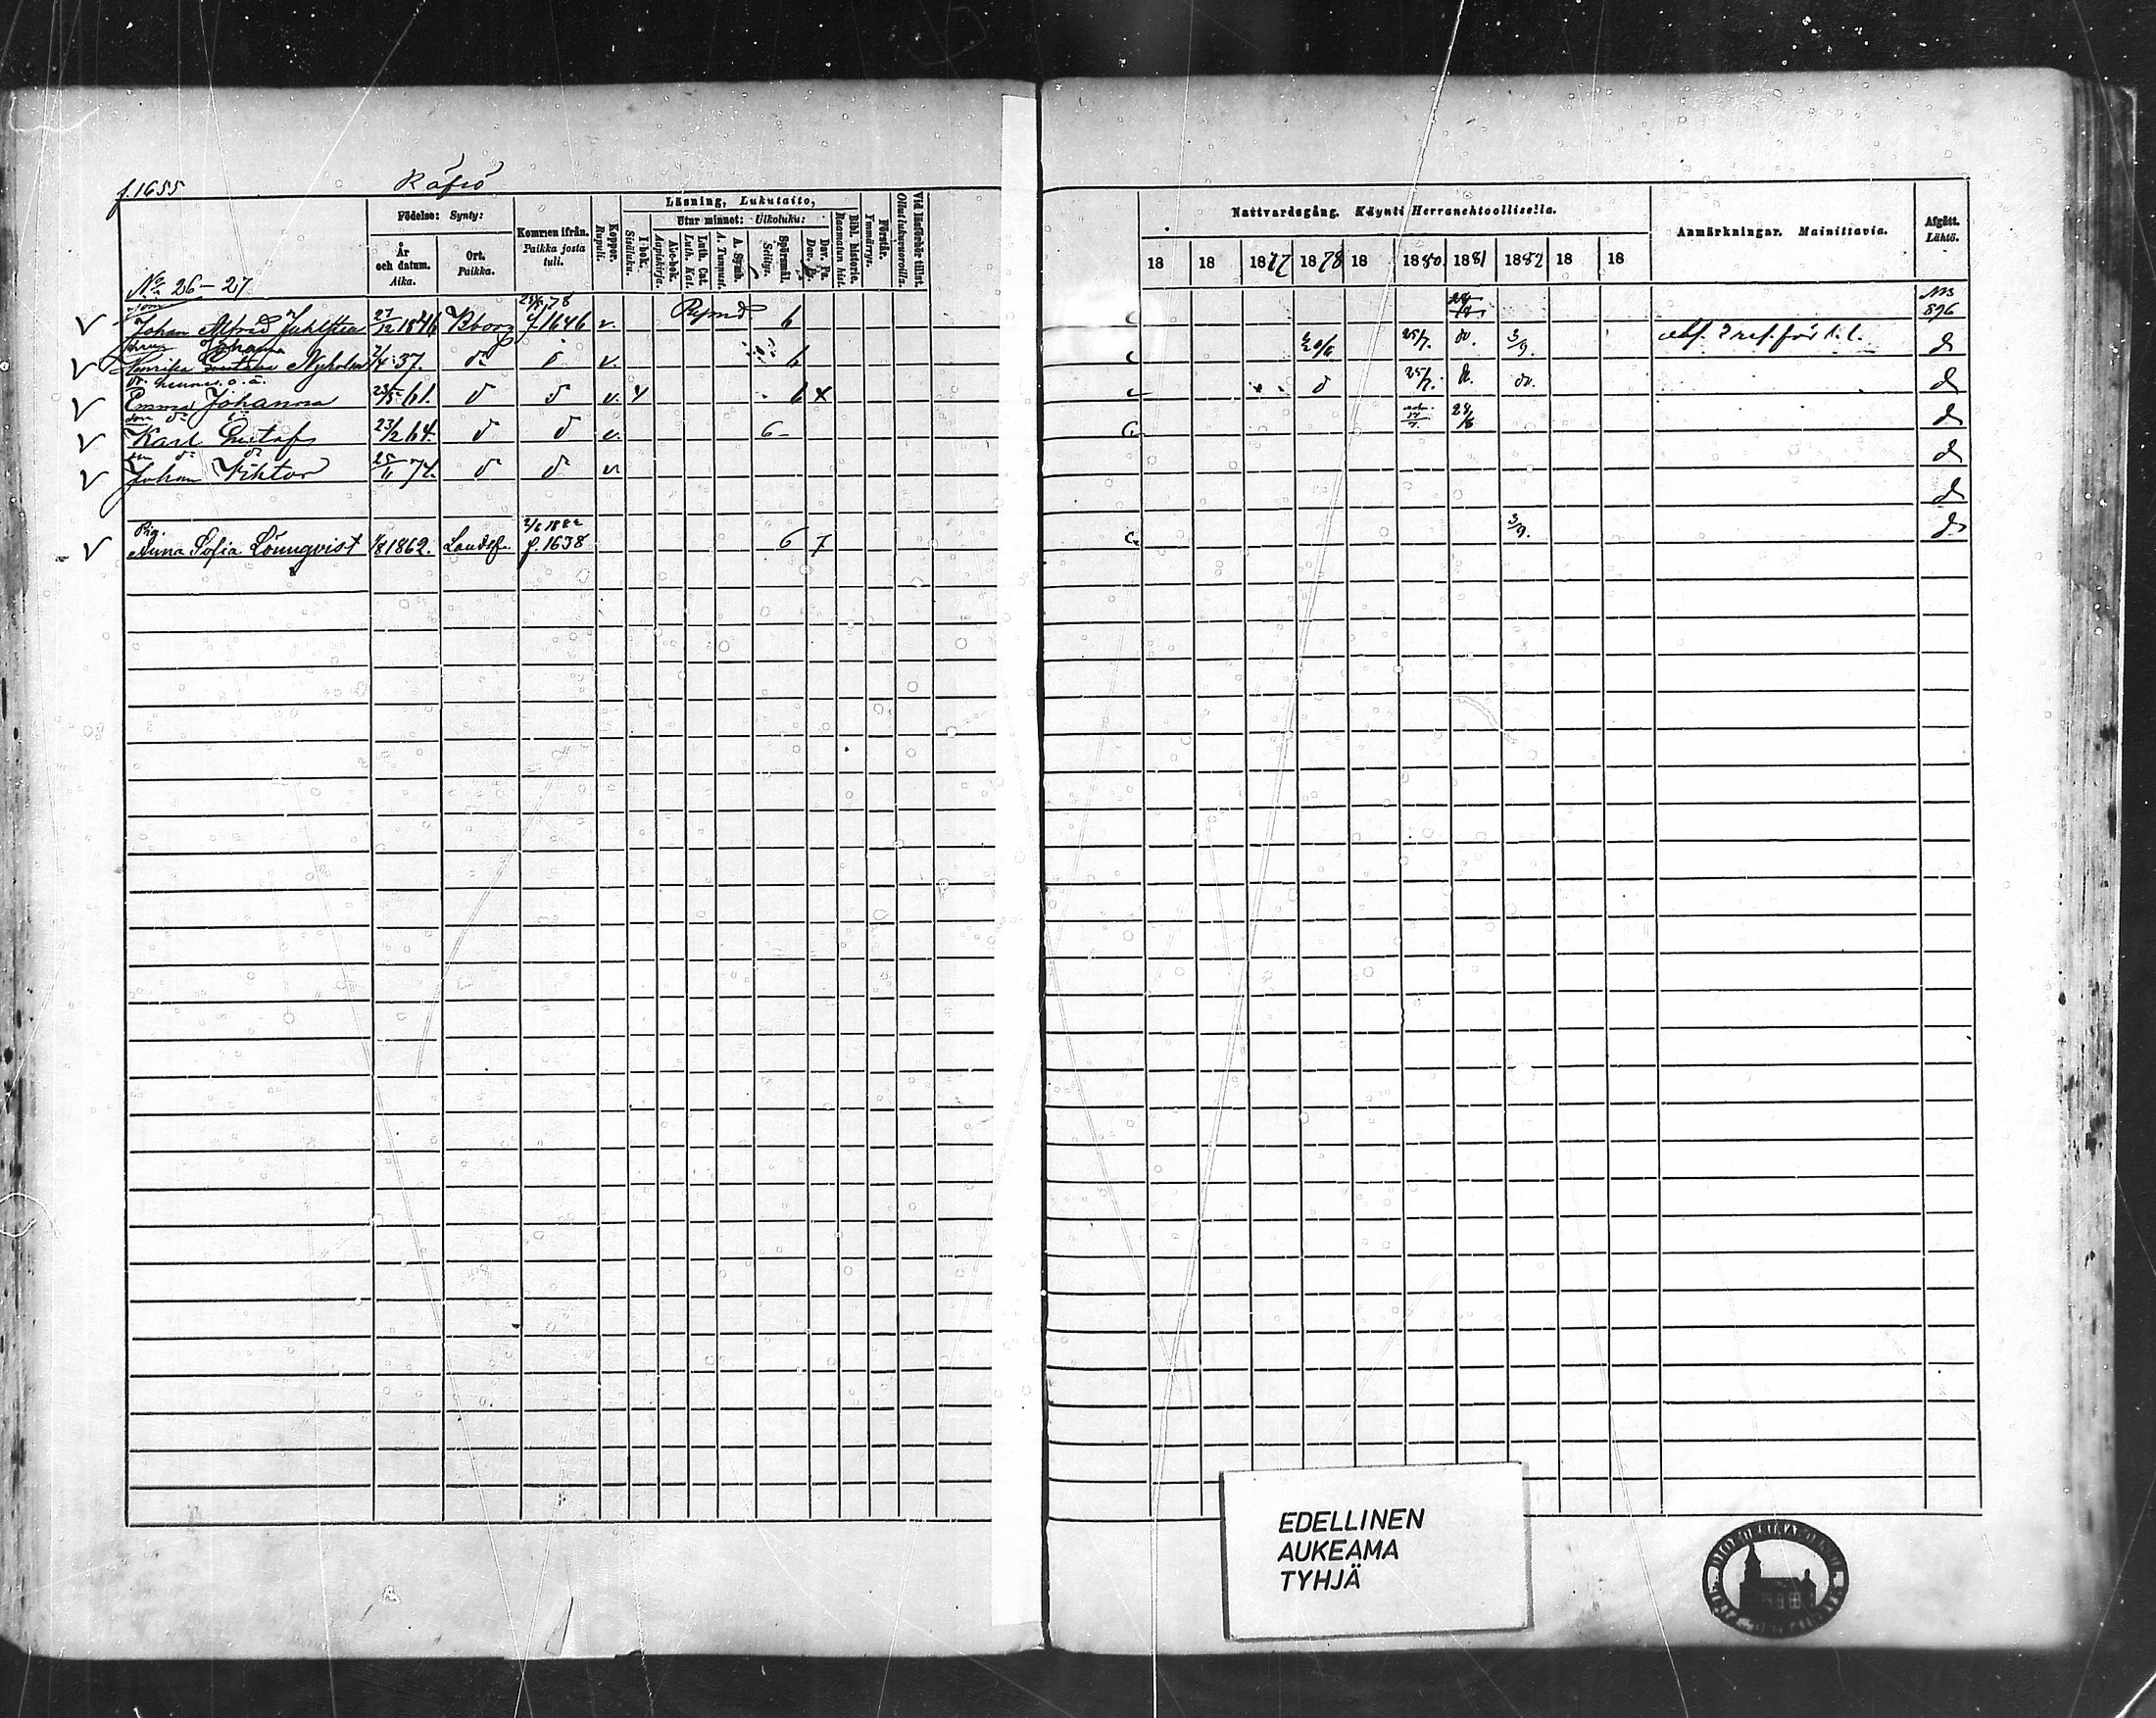 f. 1655 Räfsö
Födelse: Synty:
År och datum. Aika.
Ort. Paikka.
Kommen ifrån. Paikka josta tuli.
Koppor. Rupuli.
Läsning, Lukutaito,
I bok. Sisäluku.
Utur minnet: Ulkoluku:
Abc-bok. Aapiskirja.
Luth. Cat. Luth. Kat.
A. Symb. A. Tunnust.
Spörsmål. Selitys.
Dav. Ps. Dav. Ps.
Bibl. historia. Raamatun hist.
Förstår. Ymmärrys.
Vid läsförhör tillst. Ollut lukuvuoroilla.
Nattvardsgång. Käynti Herranehtoollisella.
18 18 1877 1878 18 1880 1881 1882 18 18
Anmärkningar. Mainittavia.
Afgått. Lähtö.
No 26-27
28/1 78 NB
Johan Alfrid 27/12 1846 Kborg f. 1646 v. 6 896
Johanna
Henrika Nyholm 7/4 37. do v. 6 25/7. do. 3/9. d
Emma Johanna 23/5 61. d d v. 4 6 x c d 25/7. do. d
Karl Gustaf 23/2 64. d d v. 6 28/6 d
Johan Viktor 25/11 74. d d v d
d
Pig. 2/6 1882
Anna Sofia Lönnqvist 1/8 1862. Landsf. f. 1638 6 7 c. 3/9. d
EDELLINEN
AUKEAMA
TYHJÄ